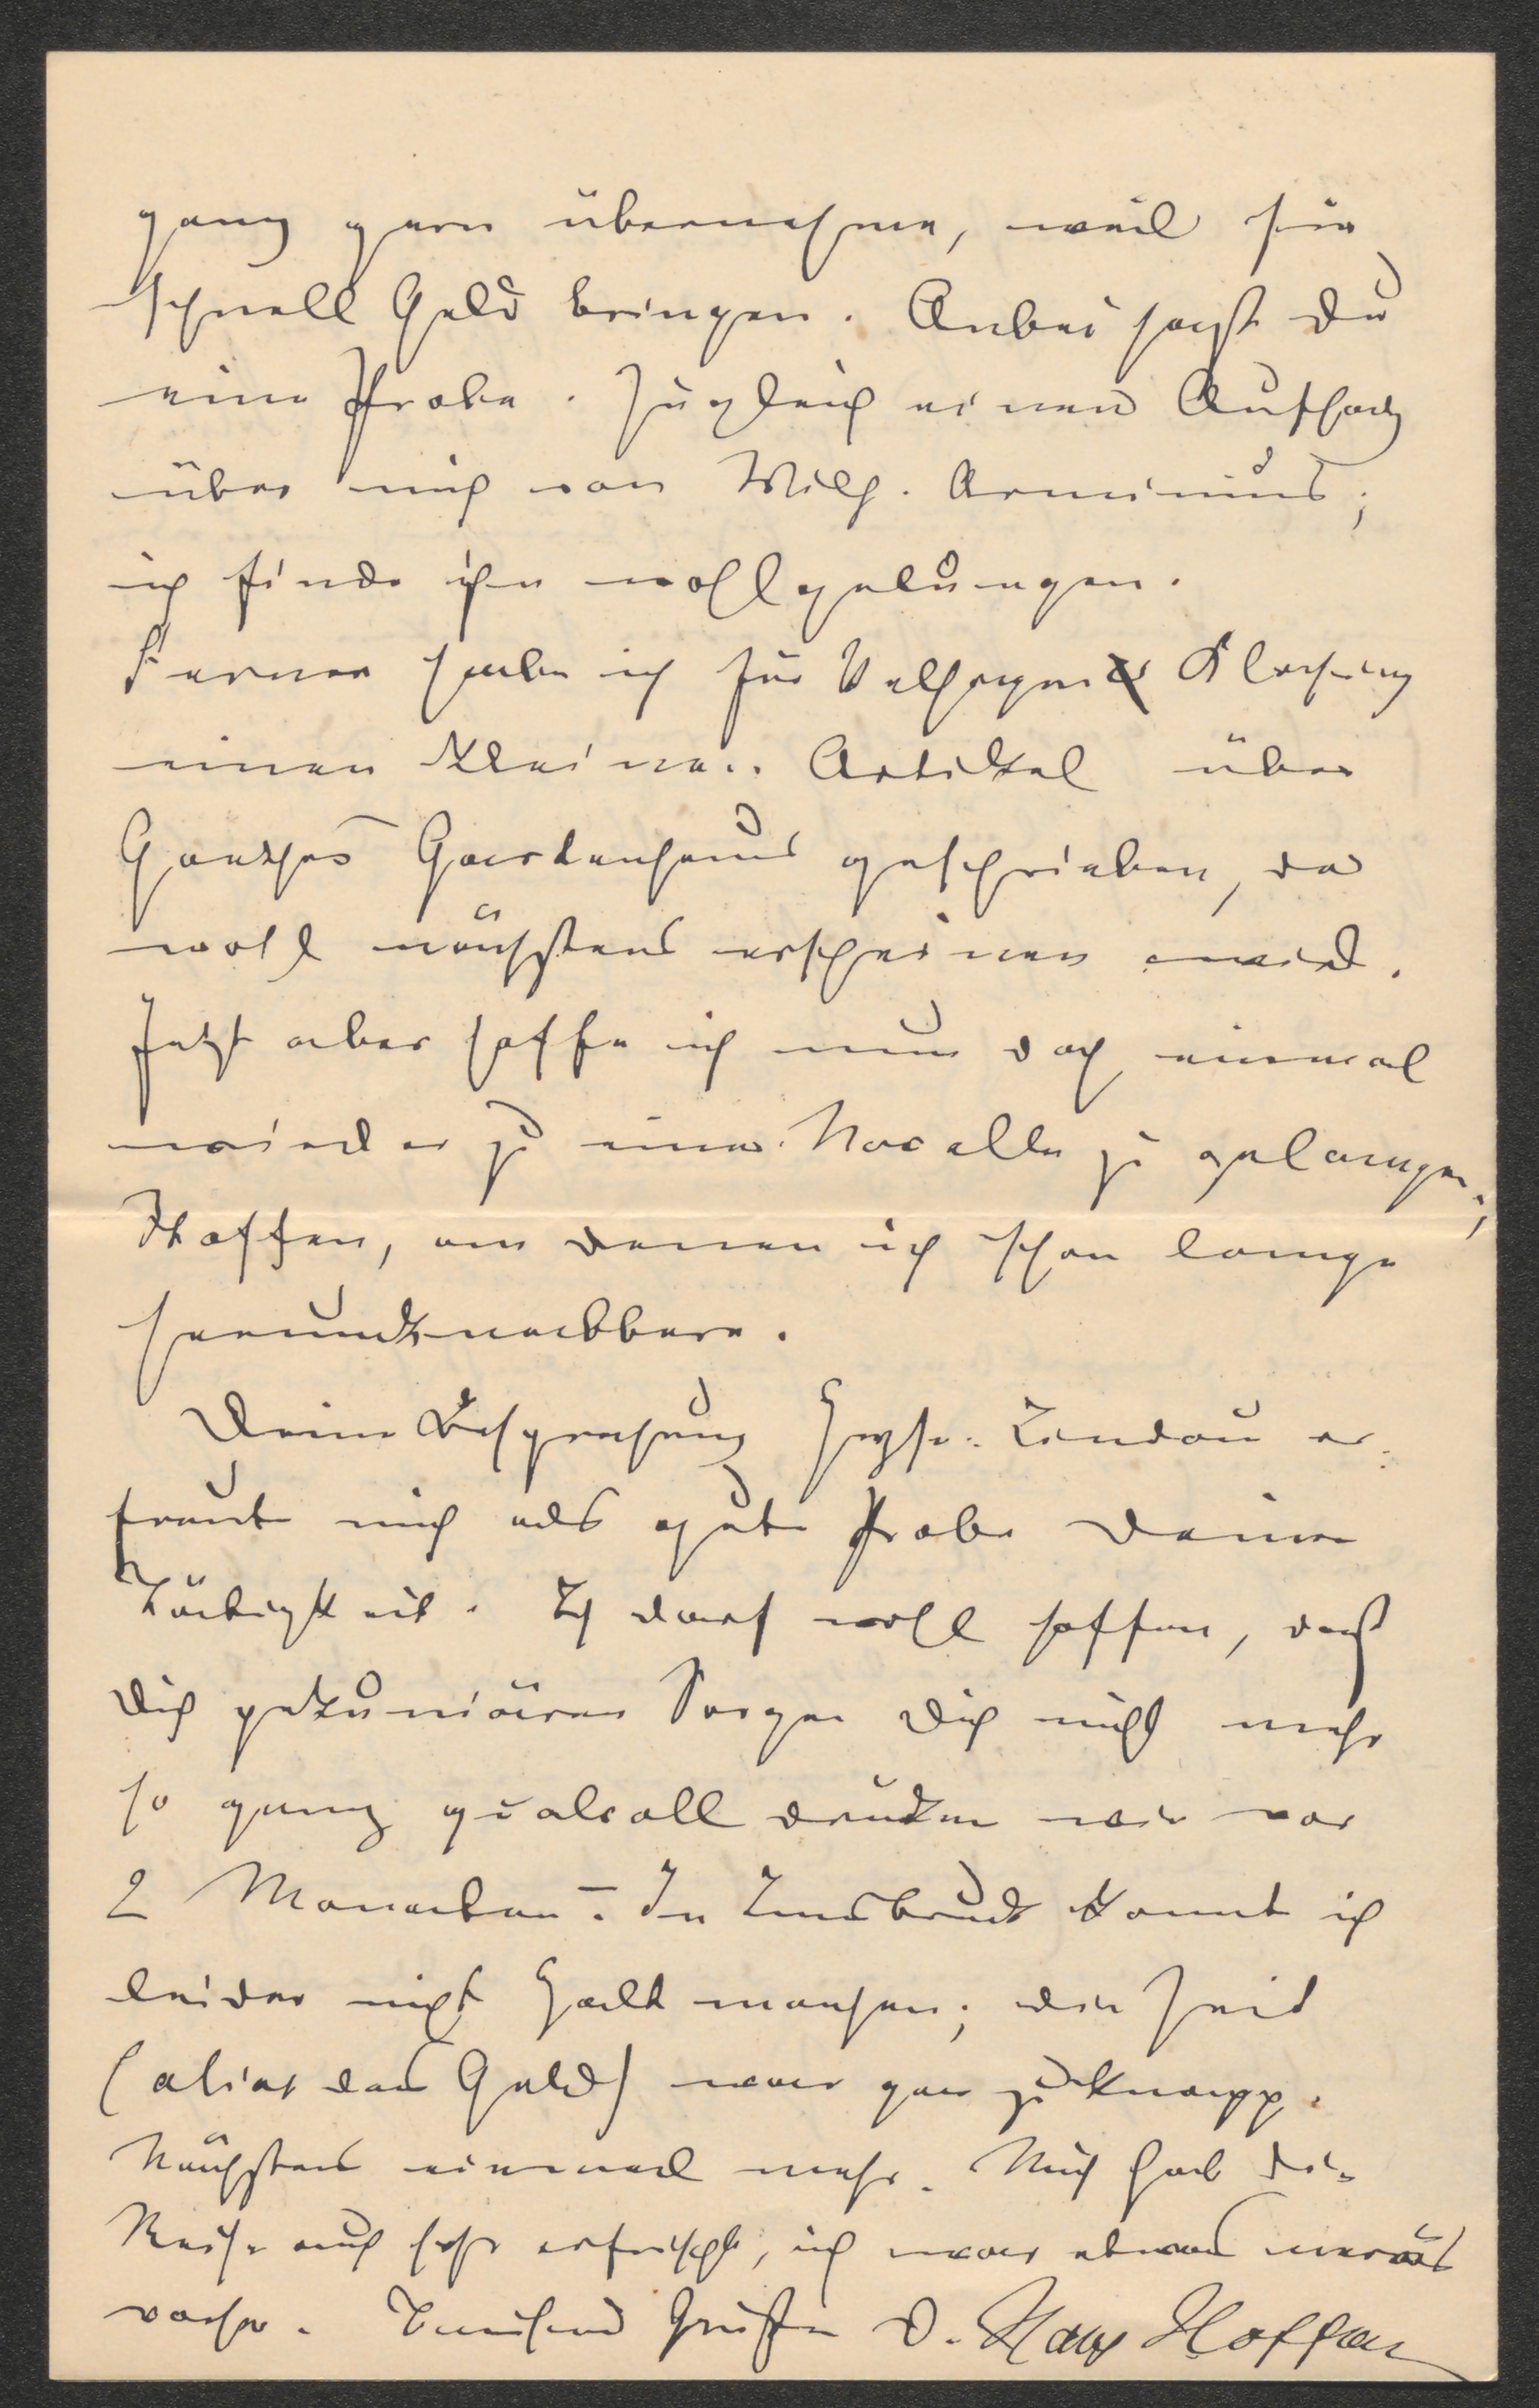 ganz gern übernehme, weil sie
schnell Geld bringen. Anbei hast Du
eine Probe. Zugleich einen Aufsatz
über mich von Wilh. Arminius;
ich finde ihn wohlgelungen.
Ferner habe ich für Velhagen & Klasing
einen kleinen Artikel über
Goethes Gartenhaus geschrieben, der
wohl nächstens erscheinen wird.
Jetzt aber hoffe ich nun doch einmal
wieder zu einer Novelle zu gelangen;
Stoffen, an denen ich schon lange
herumknabbere.
Deine Besprechung Heyse-Lindau er-
freute mich als gute Probe Deiner
Tätigkeit. Ich darf wohl hoffen, daß
Dich pekuniäre Sorgen Dich nicht mehr
so ganz qualvoll drücken wie vor
2 Monaten. – In Innsbruck konnt ich
leider nicht Halt machen; die Zeit
(alias das Geld) war gar zu knapp.
Nächstens einmal mehr. Mich hat die
Reise auch sehr erfrischt, ich war etwas nervös
vorher. Tausend Grüße D. Hans Hoffmann